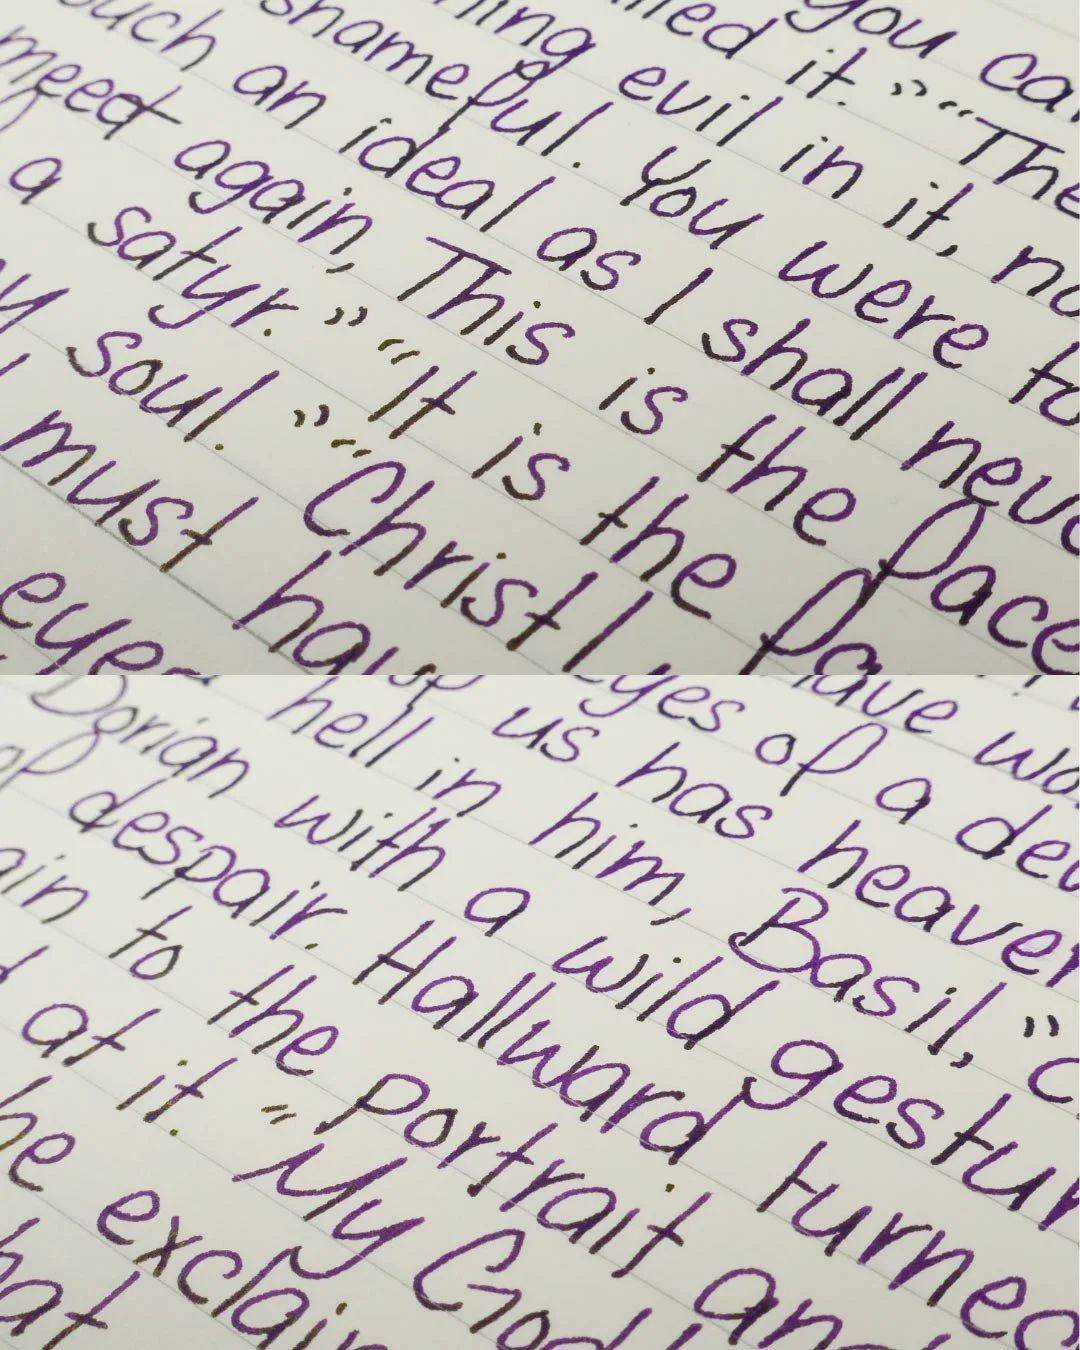 you ca
lled it.” “The
hing evil in it, no
shameful. You were to
such an ideal as I shall neve
meet again, This is the face
a satyr.” “It is the fa
y soul.” “Christ I
must have
eyes
ave wo
eyes of a dev
us has heaven
hell in him, Basil,” c
Dorian with a wild gestur
of despair. Hallward turned
ain to the portrait and
d at it. “My God
he exclaim
hat